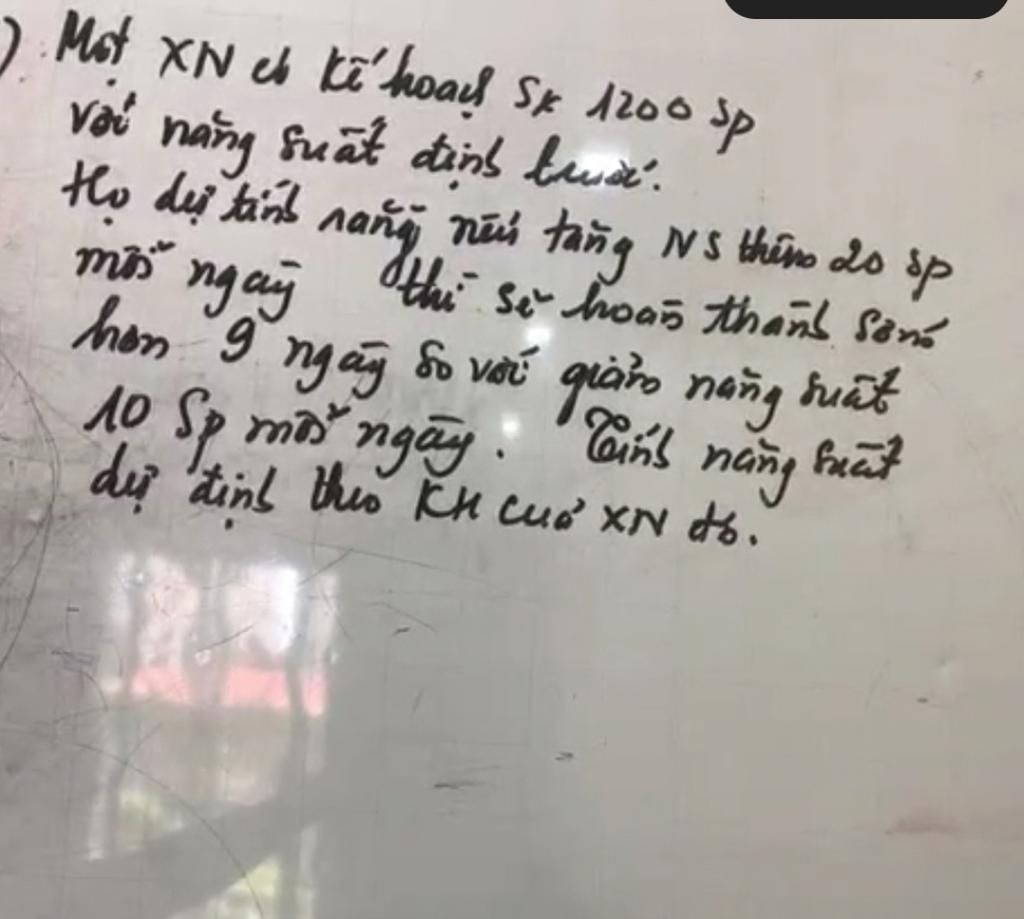 ) Một XN có kế hoạch SX 1200 sp
với năng suất định trước.
Họ dự tính rằng nếu tăng NS thêm 20 sp
mỗi ngày thì sẽ hoàn thành sớm
hơn 9 ngày so với giảm năng suất
10 sp mỗi ngày. Tính năng suất
dự định theo KH của XN đó.